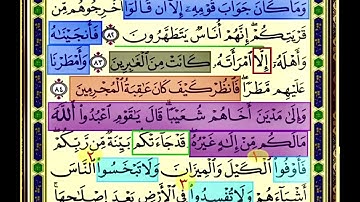 وَمَا كَانَ جَوَابَ قَوْمِهِۦٓ إِلَّآ أَن قَالُوٓا۟ أَخْرِجُوهُم مِّن
قَرْيَتِكُمْ ۖ إِنَّهُمْ أُنَاسٌ يَتَطَهَّرُونَ ٨٢ فَأَنجَيْنَٰهُ
وَأَهْلَهُۥٓ إِلَّا ٱمْرَأَتَهُۥ كَانَتْ مِنَ ٱلْغَٰبِرِينَ ٨٣ وَأَمْطَرْنَا
عَلَيْهِم مَّطَرًا ۖ فَٱنظُرْ كَيْفَ كَانَ عَٰقِبَةُ ٱلْمُجْرِمِينَ ٨٤
وَإِلَىٰ مَدْيَنَ أَخَاهُمْ شُعَيْبًا ۗ قَالَ يَٰقَوْمِ ٱعْبُدُوا۟ ٱللَّهَ
مَا لَكُم مِّنْ إِلَٰهٍ غَيْرُهُۥ ۖ قَدْ جَآءَتْكُم بَيِّنَةٌ مِّن رَّبِّكُمْ ۖ
فَأَوْفُوا۟ ٱلْكَيْلَ وَٱلْمِيزَانَ وَلَا تَبْخَسُوا۟ ٱلنَّاسَ
أَشْيَآءَهُمْ وَلَا تُفْسِدُوا۟ فِى ٱلْأَرْضِ بَعْدَ إِصْلَٰحِهَا ۚ